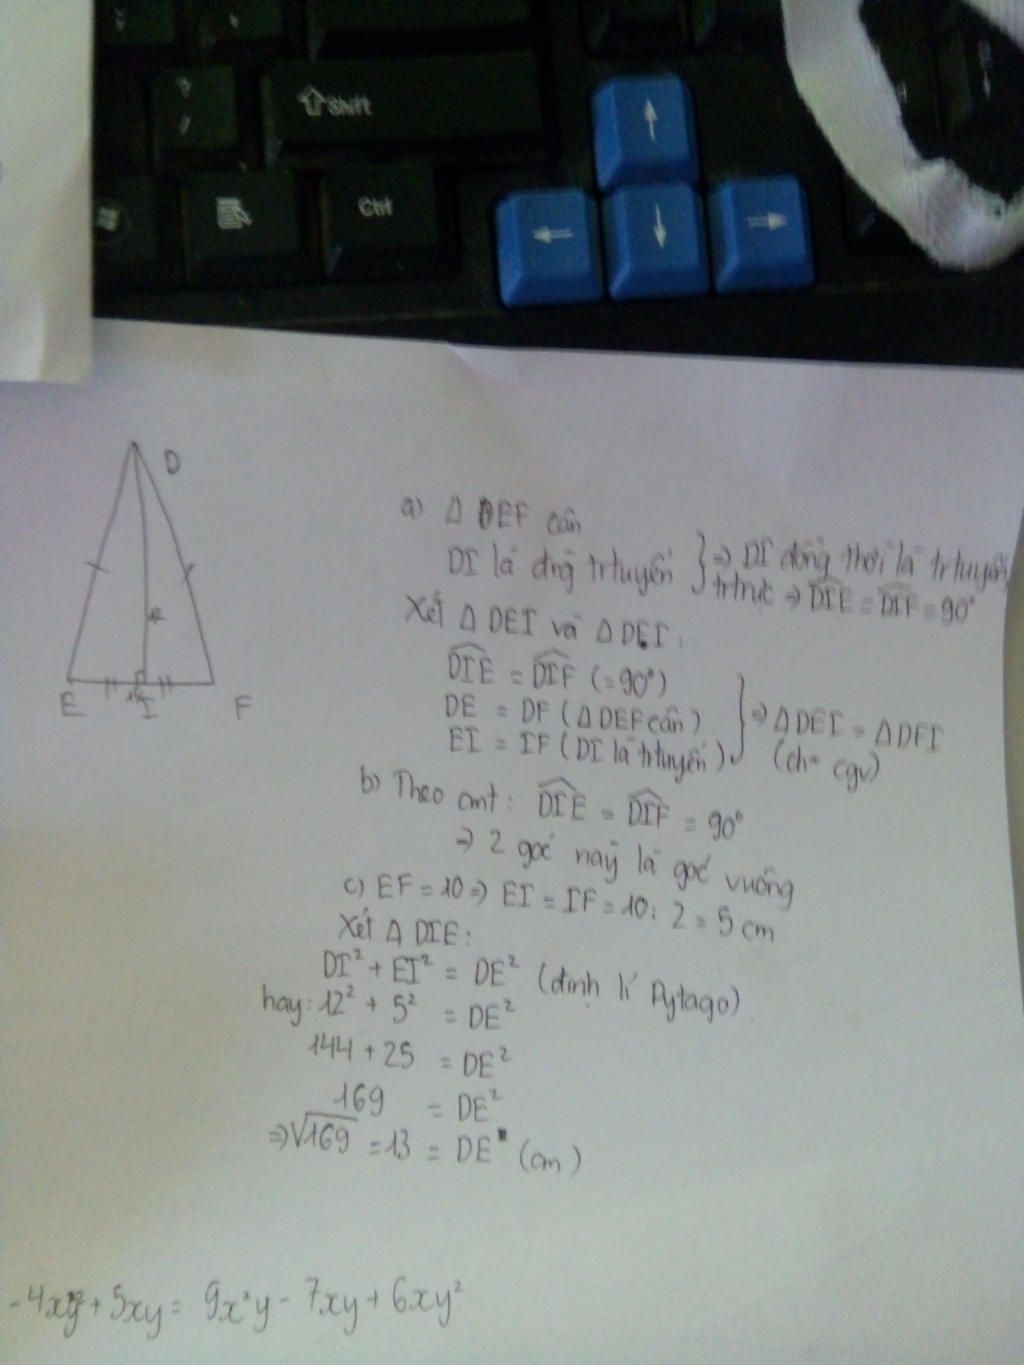 Shift
Ctrl
D
12
E
I
F
a) Δ DEF cân
DI là đng trtuyến } => DI đồng thời là trtuyến
trtrực => DIE = DIF = 90°
Xét Δ DEI và Δ DEI:
DIE = DIF (=90°)
DE = DF (Δ DEF cân)
EI = IF (DI là trtuyến) } => Δ DEI = Δ DFI
(ch - cgv)
b) Theo cmt: DIE = DIF = 90°
=> 2 góc này là góc vuông
c) EF = 10 => EI = IF = 10 : 2 = 5 cm
Xét Δ DIE:
DI² + EI² = DE² (định lí Pytago)
hay: 12² + 5² = DE²
144 + 25 = DE²
169 = DE²
=> √169 = 13 = DE (cm)
-4xy² + 5xy = 9x²y - 7xy + 6xy²